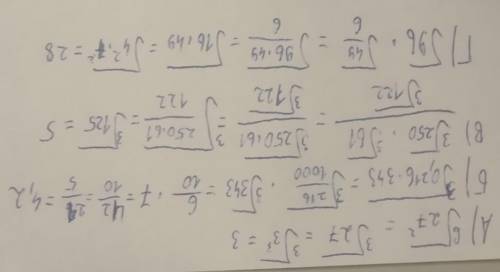 А) ⁶√27² = ³√27 = ³√3³ = 3
Б) ³√0,216·343 = ³√216/1000 · ³√343 = 6/10 · 7 = 42/10 = 21/5 = 4,2
В) ³√250 · ³√61 / ³√122 = ³√250·61 / ³√122 = ³√250·61/122 = ³√125 = 5
Г) √96 · √49/6 = √96·49/6 = √16·49 = √4²·7² = 28